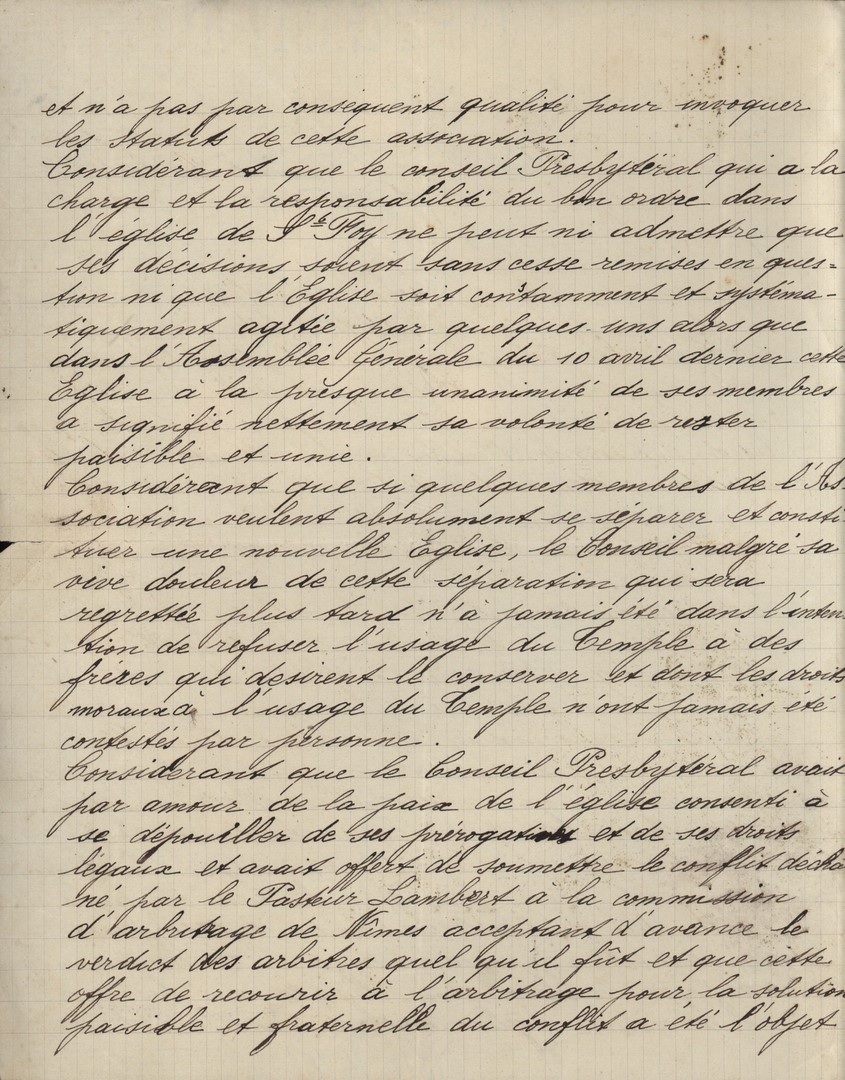 et n'a pas par conséquent qualité pour invoquer
les statuts de cette association.
Considérant que le conseil Presbytéral qui a la
charge et la responsabilité du bon ordre dans
l'église de Ste Foy ne peut ni admettre que
ses décisions soient sans cesse remises en ques=
tion ni que l'Eglise soit constamment et systéma-
tiquement agitée par quelques uns alors que
dans l'Assemblée Générale du 10 avril dernier cette
Eglise à la presque unanimité de ses membres
a signifié nettement sa volonté de rester
paisible et unie.
Considérant que si quelques membres de l'As-
sociation veulent absolument se séparer et consti-
tuer une nouvelle Eglise, le Conseil malgré sa
vive douleur de cette séparation qui sera
regrettée plus tard n'a jamais été dans l'inten-
tion de refuser l'usage du Temple à des
frères qui desirent le conserver et dont les droits
moraux à l'usage du Temple n'ont jamais été
contestés par personne.
Considerant que le Conseil Presbytéral avait
par amour de la paix de l'église consenti à
se dépouiller de ses prérogatives et de ses droits
légaux et avait offert de soumettre le conflit décha
né par le Pasteur Lambert à la commission
d'arbitrage de Nîmes acceptant d'avance le
verdict des arbitres quel qu'il fût et que cette
offre de recourir à l'arbitrage pour la solution
paisible et fraternelle du conflit a été l'objet